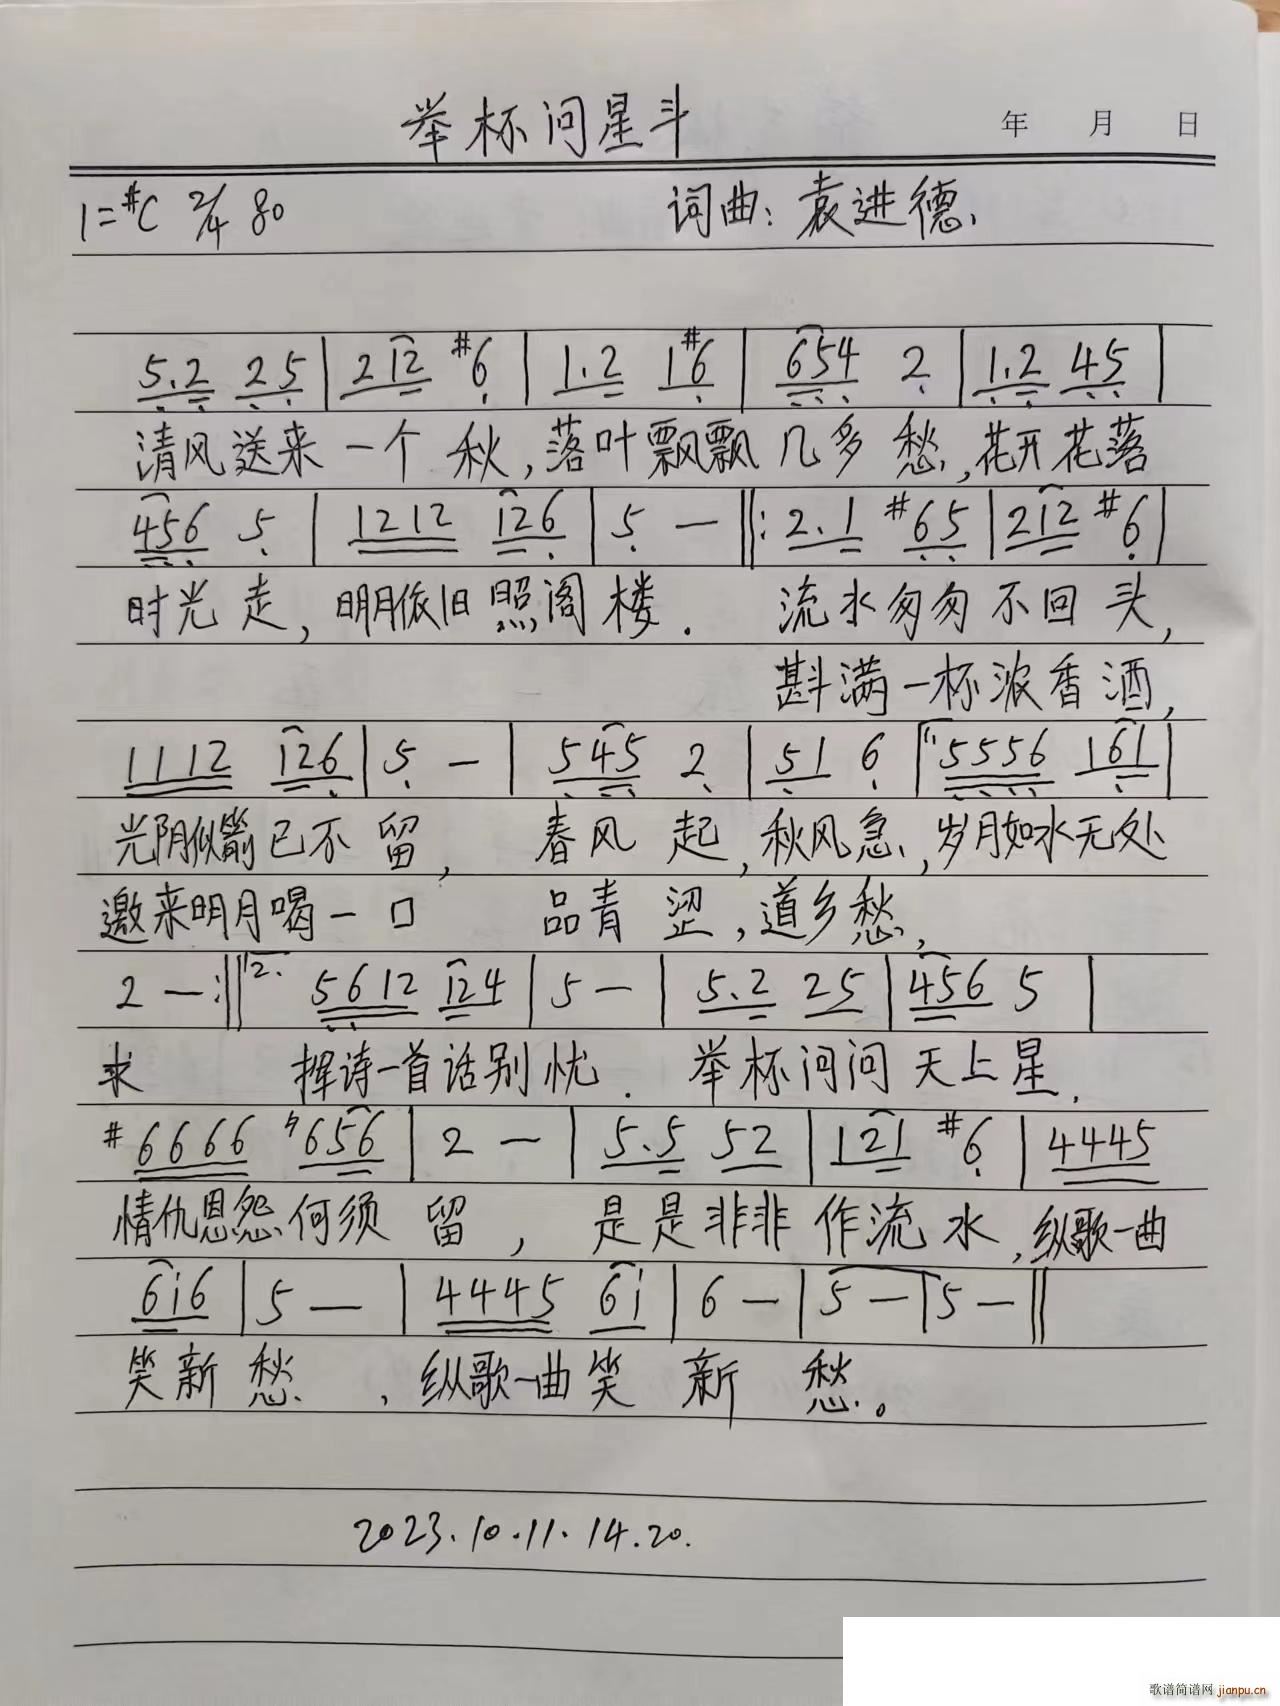 举杯问星斗
年 月 日
1=#C 2/4 80 词曲：袁进德
5.2 25 | 212 #6 | 1.2 1#6 | 654 2 | 1.2 45 |
清风送来一个秋,落叶飘飘几多愁,花开花落
456 5 | 1212 126 | 5 — ‖: 2.1 #65 | 212 #6 |
时光走,明月依旧照阁楼. 流水匆匆不回头,
斟满一杯浓香酒,
1112 126 | 5 — | 545 2 | 51 6 | 1. 5556 161 |
光阴似箭已不留, 春风起,秋风急,岁月如水无处
邀来明月喝一口 品青涩,道乡愁,
2 — :‖ 2. 5612 124 | 5 — | 5.2 25 | 456 5 |
求 挥诗一首话别忧. 举杯问问天上星,
#6666 ♮656 | 2 — | 5.5 52 | 121 #6 | 4445
情仇恩怨何须留, 是是非非作流水,纵歌一曲
6i6 | 5 — | 4445 6i | 6 — | 5 — | 5 — ‖
笑新愁,纵歌一曲笑新愁。
2023.10.11.14.20.
歌谱简谱网 jianpu.cn